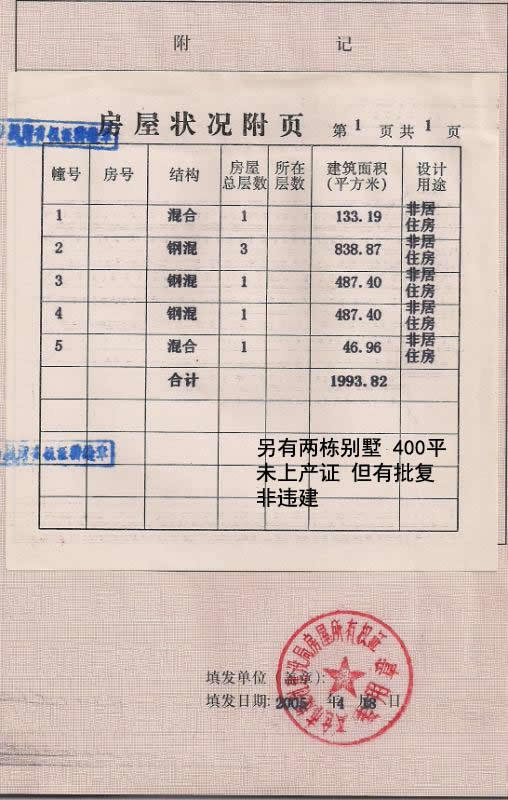 附 记
房屋状况附页 第1页共1页
幢号 房号 结构 房屋总层数 所在层数 建筑面积(平方米) 设计用途
1 混合 1 133.19 非居住房
2 钢混 3 838.87 非居住房
3 钢混 1 487.40 非居住房
4 钢混 1 487.40 非居住房
5 混合 1 46.96 非居住房
合计 1993.82
另有两栋别墅 400平
未上产证 但有批复
非违建
局房屋所有权证
专用章
填发单位(盖章):
填发日期: 2005 年 4 月 18 日